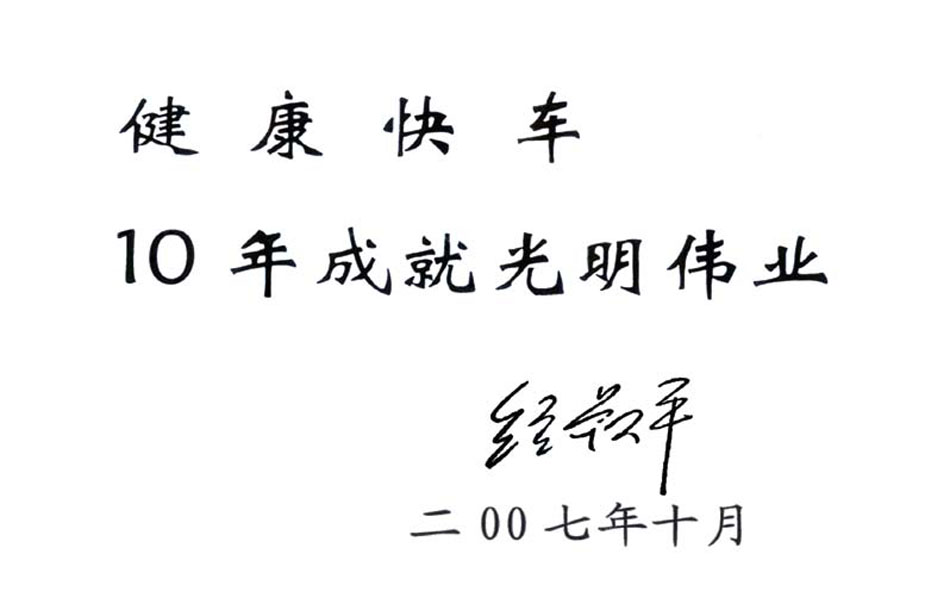 健康快车
10年成就光明伟业
经叔平
二00七年十月